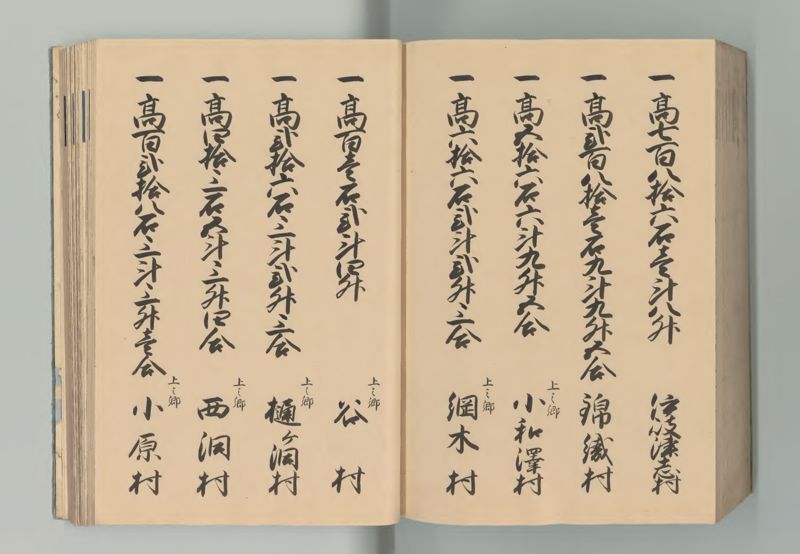 一 高七百八拾六石壱斗八升
村
一 高弐百八拾壱石九斗九升五合
錦織村
一 高五拾六石六斗九升五合
上之郷
小和澤村
一 高六拾六石弐斗弐升三合
上之郷
綱木村
一 高百壱石弐斗四升
上之郷
谷村
一 高弐拾六石三斗弐升三合
上之郷
樋ヶ洞村
一 高四拾三石五斗三升四合
上之郷
西洞村
一 高百弐拾八石三斗三升壱合
上之郷
小原村